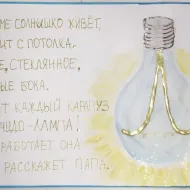 МЕ СОЛНЫШКО ЖИВЁТ,
ИТ С ПОТОЛКА.
Е, СТЕКЛЯННОЕ,
ЫЕ БОКА.
ЕТ КАЖДЫЙ КАРАПУЗ
ЧУДО-ЛАМПА!
РАБОТАЕТ ОНА
РАССКАЖЕТ ПАПА.